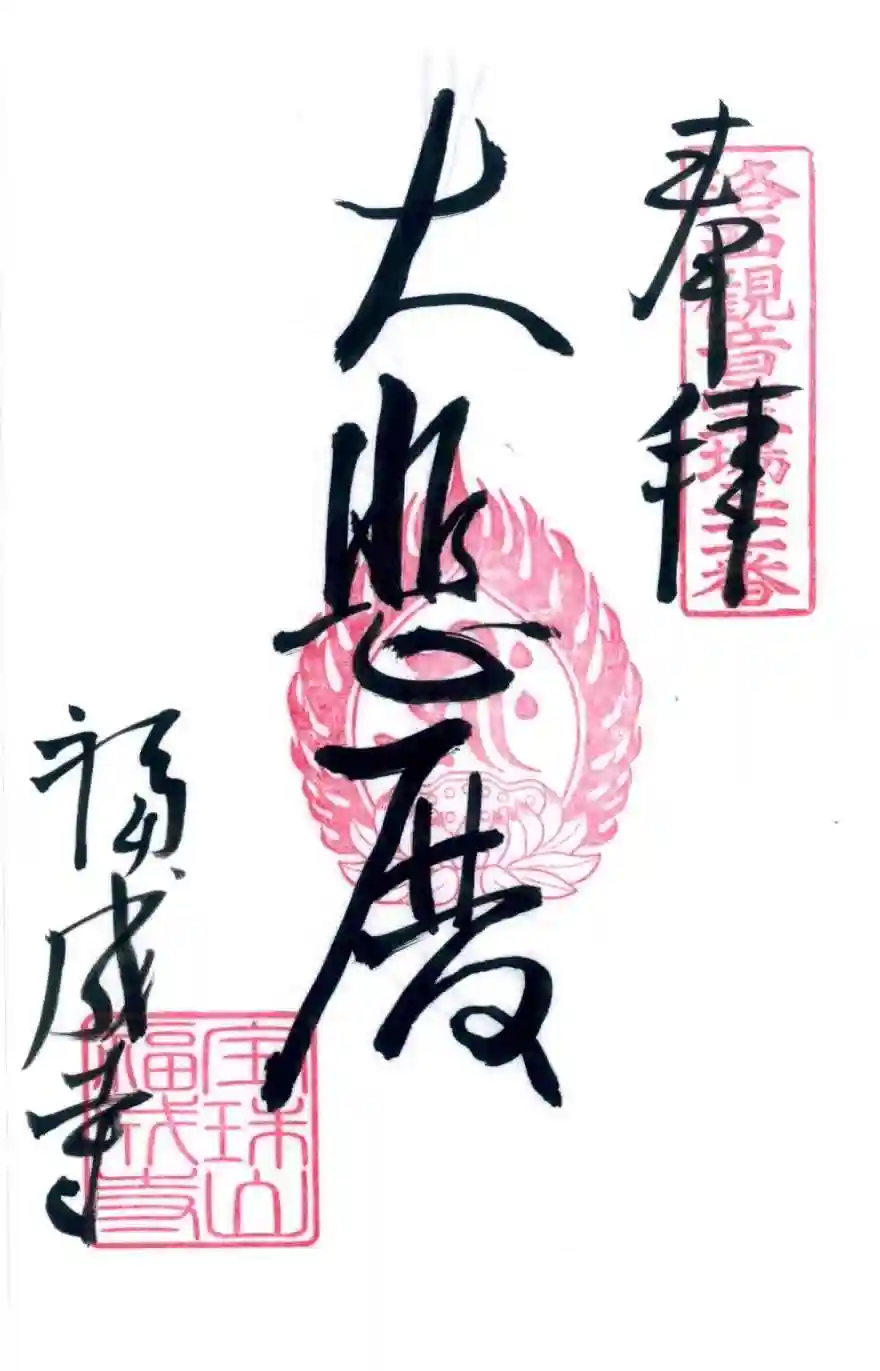 奉拝
洛西觀音霊場
番
大悲殿
福成寺
宝珠山
福成寺